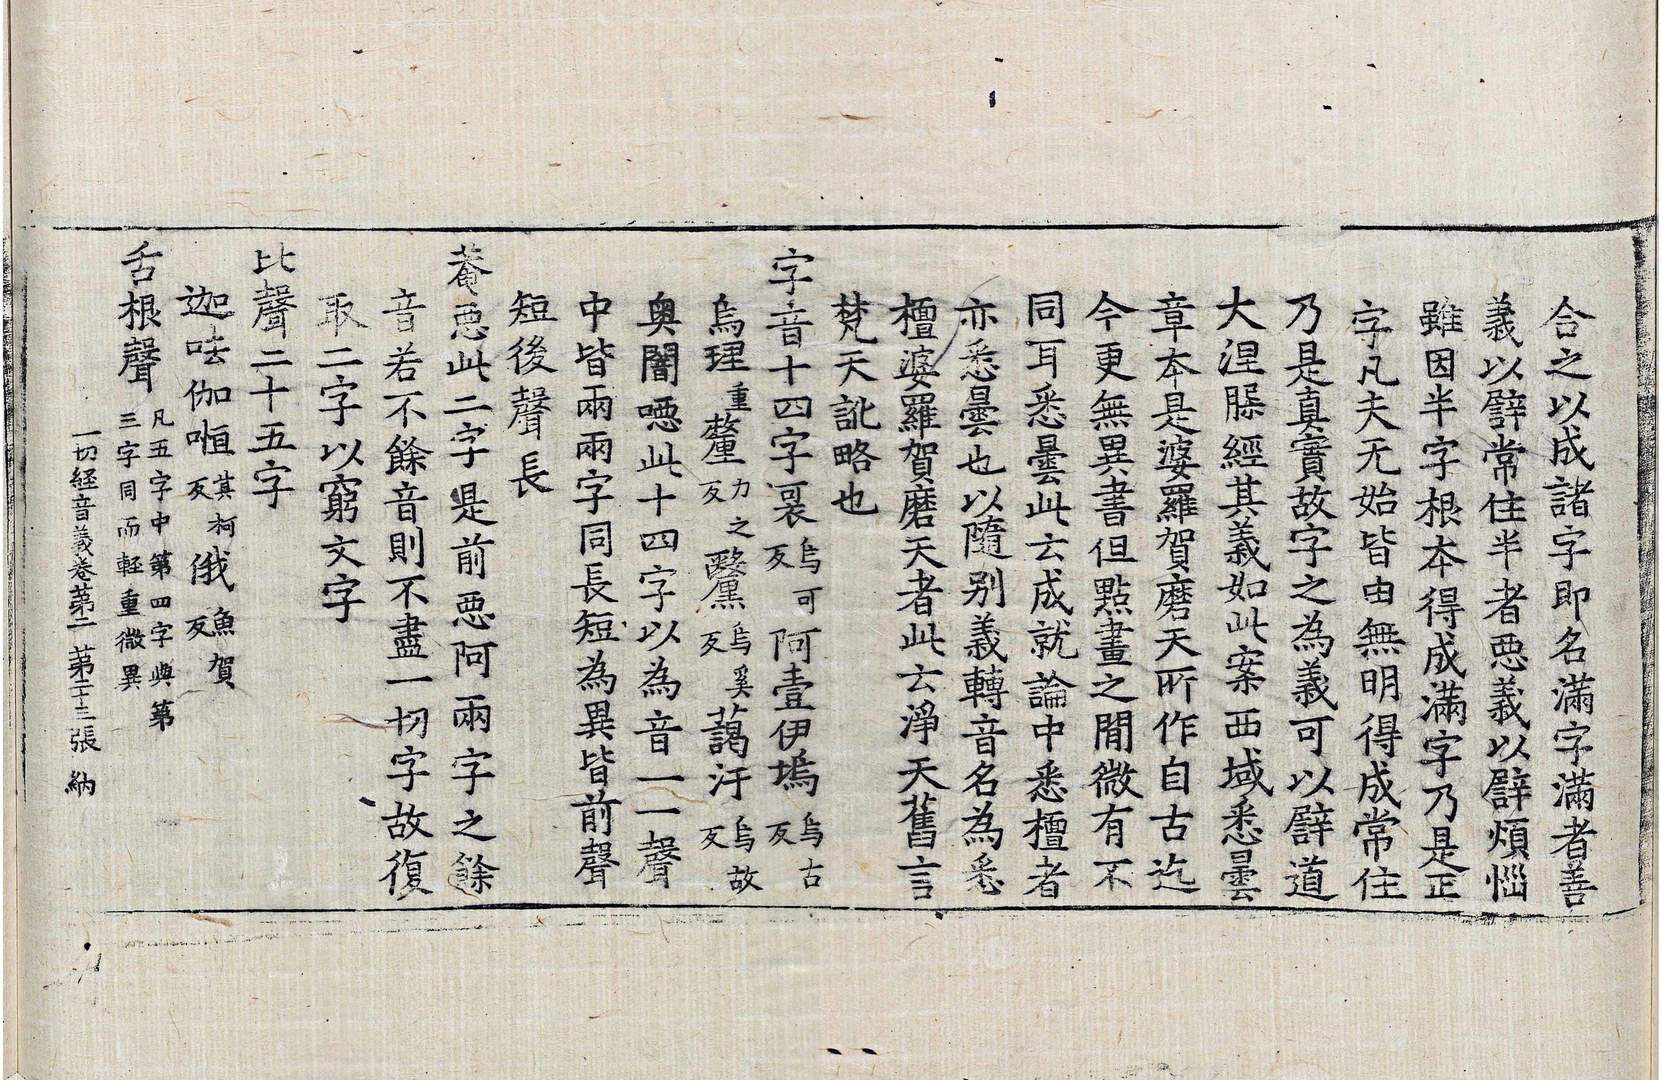 合之以成諸字即名滿字滿者善
義以譬常住半者惡義以譬煩惱
雖因半字根本得成滿字乃是正
字凡夫无始皆由無明得成常住
乃是真實故字之為義可以譬道
大涅脲經其義如此案西域悉曇
章本是婆羅賀磨天所作自古迄
今更無異書但點畫之間微有不
同耳悉曇此云成就論中悉檀者
亦悉曇也以隨別義轉音名為悉
檀婆羅賀磨天者此云淨天舊言
梵天訛略也
字音十四字裒烏可反阿壹伊塢烏古反
烏理重釐力之反黳烏奚反藹汙烏故反
奧闇噁此十四字以為音一一聲
中皆兩兩字同長短為異皆前聲
短後聲長
菴惡此二字是前惡阿兩字之餘
音若不餘音則不盡一切字故復
取二字以窮文字
比聲二十五字
迦呿伽㗌其柯反俄魚賀反
舌根聲凡五字中第四字與第三字同而輕重微異
一切經音義卷第二 第二十三張 納